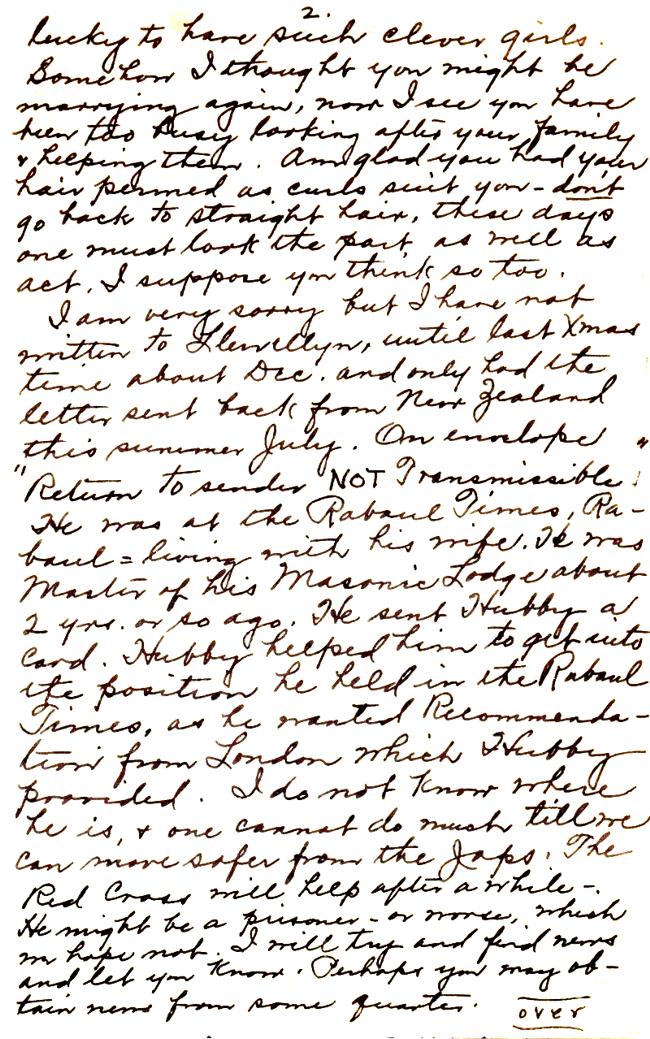 2.
lucky to have such clever girls.
Somehow I thought you might be
marrying again, now I see you have
been too busy looking after your family
& helping them. Am glad you had your
hair permed as curls suit you - don't
go back to straight hair, these days
one must look the part as well as
act, I suppose you think so too.
I am very sorry but I have not
written to Llewellyn, until last Xmas
time about Dec. and only had the
letter sent back from New Zealand
this summer July. On envelope "
"Return to sender NOT Transmissible.
He was at the Rabaul Times, Ra-
baul = living with his wife. He was
Master of his Masonic Lodge about
2 yrs. or so ago. He sent Hubby a
card. Hubby helped him to get into
the position he held in the Rabaul
Times, as he wanted Recommenda-
tion from London which Hubby
provided. I do not know where
he is, & one cannot do much till we
can move safer from the Japs. The
Red Cross will help after a while -.
He might be a prisoner - or worse, which
we hope not. I will try and find news
and let you know. Perhaps you may ob-
tain news from some quarter. over